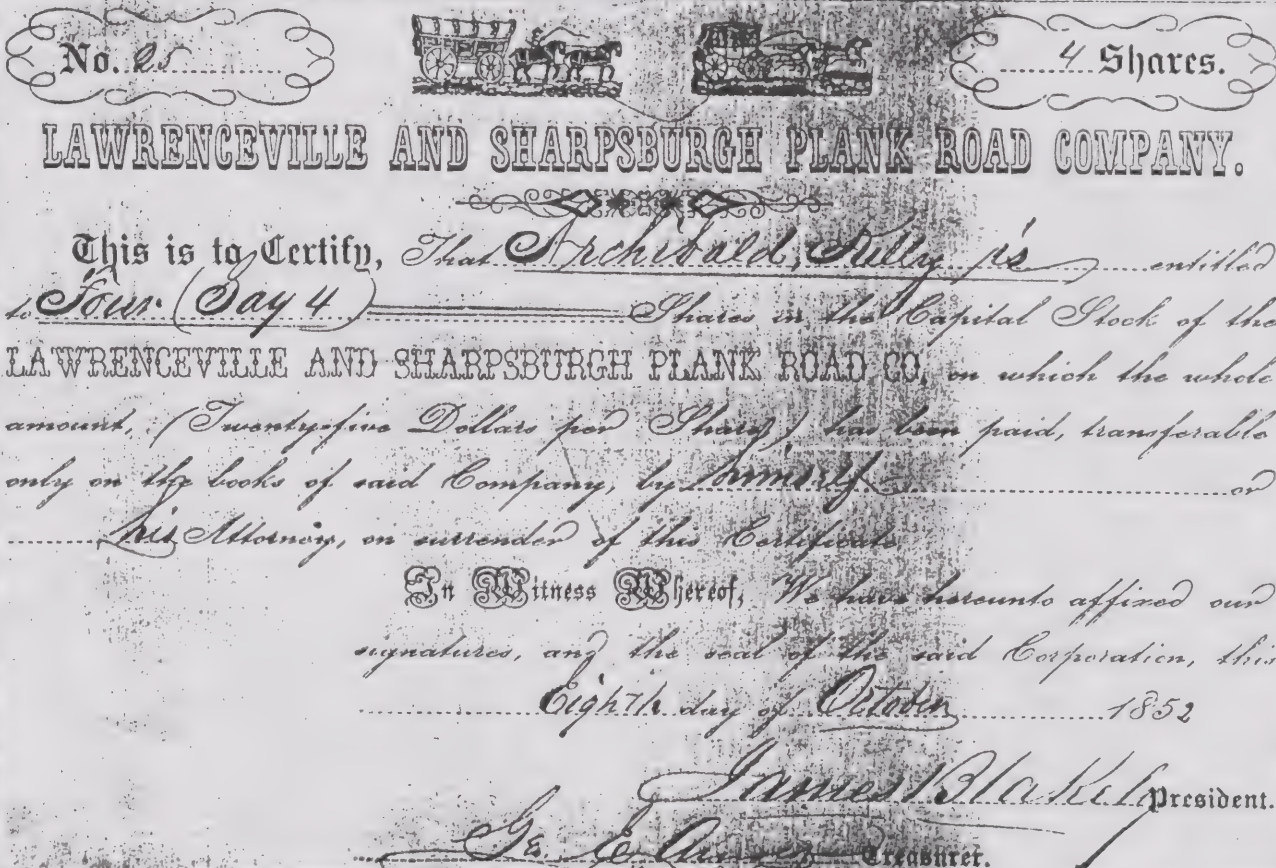 No. 25
4 Shares.
LAWRENCEVILLE AND SHARPSBURGH PLANK ROAD COMPANY.
This is to Certify, That Archibald, Kelly is entitled
to Four (Say 4) Shares in the Capital Stock of the
LAWRENCEVILLE AND SHARPSBURGH PLANK ROAD CO, on which the whole
amount, (Twenty-five Dollars per Share,) has been paid, transferable
only on the books of said Company, by himself or
his Attorney, on surrender of this Certificate
In Witness Whereof, We have hereunto affixed our
signatures, and the seal of the said Corporation, this
Eighth day of October 1852
James Blakely President.
Treasurer.